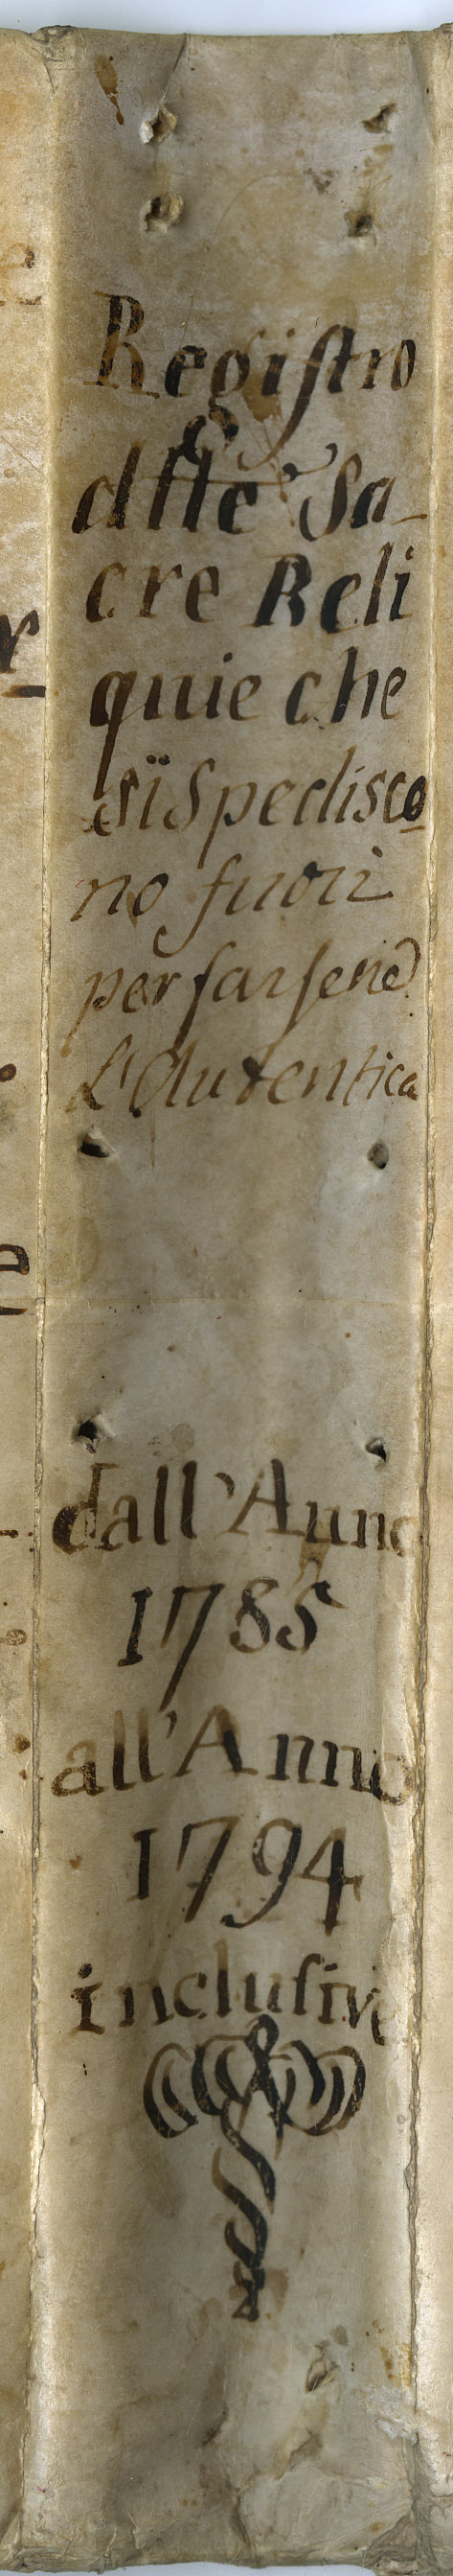 Registro
dlle Sa-
cre Reli
quie che
si Spedisco
no fuori
per farsene
L'Autentica
dall'Anno
1785
all'Anno
1794
inclusive